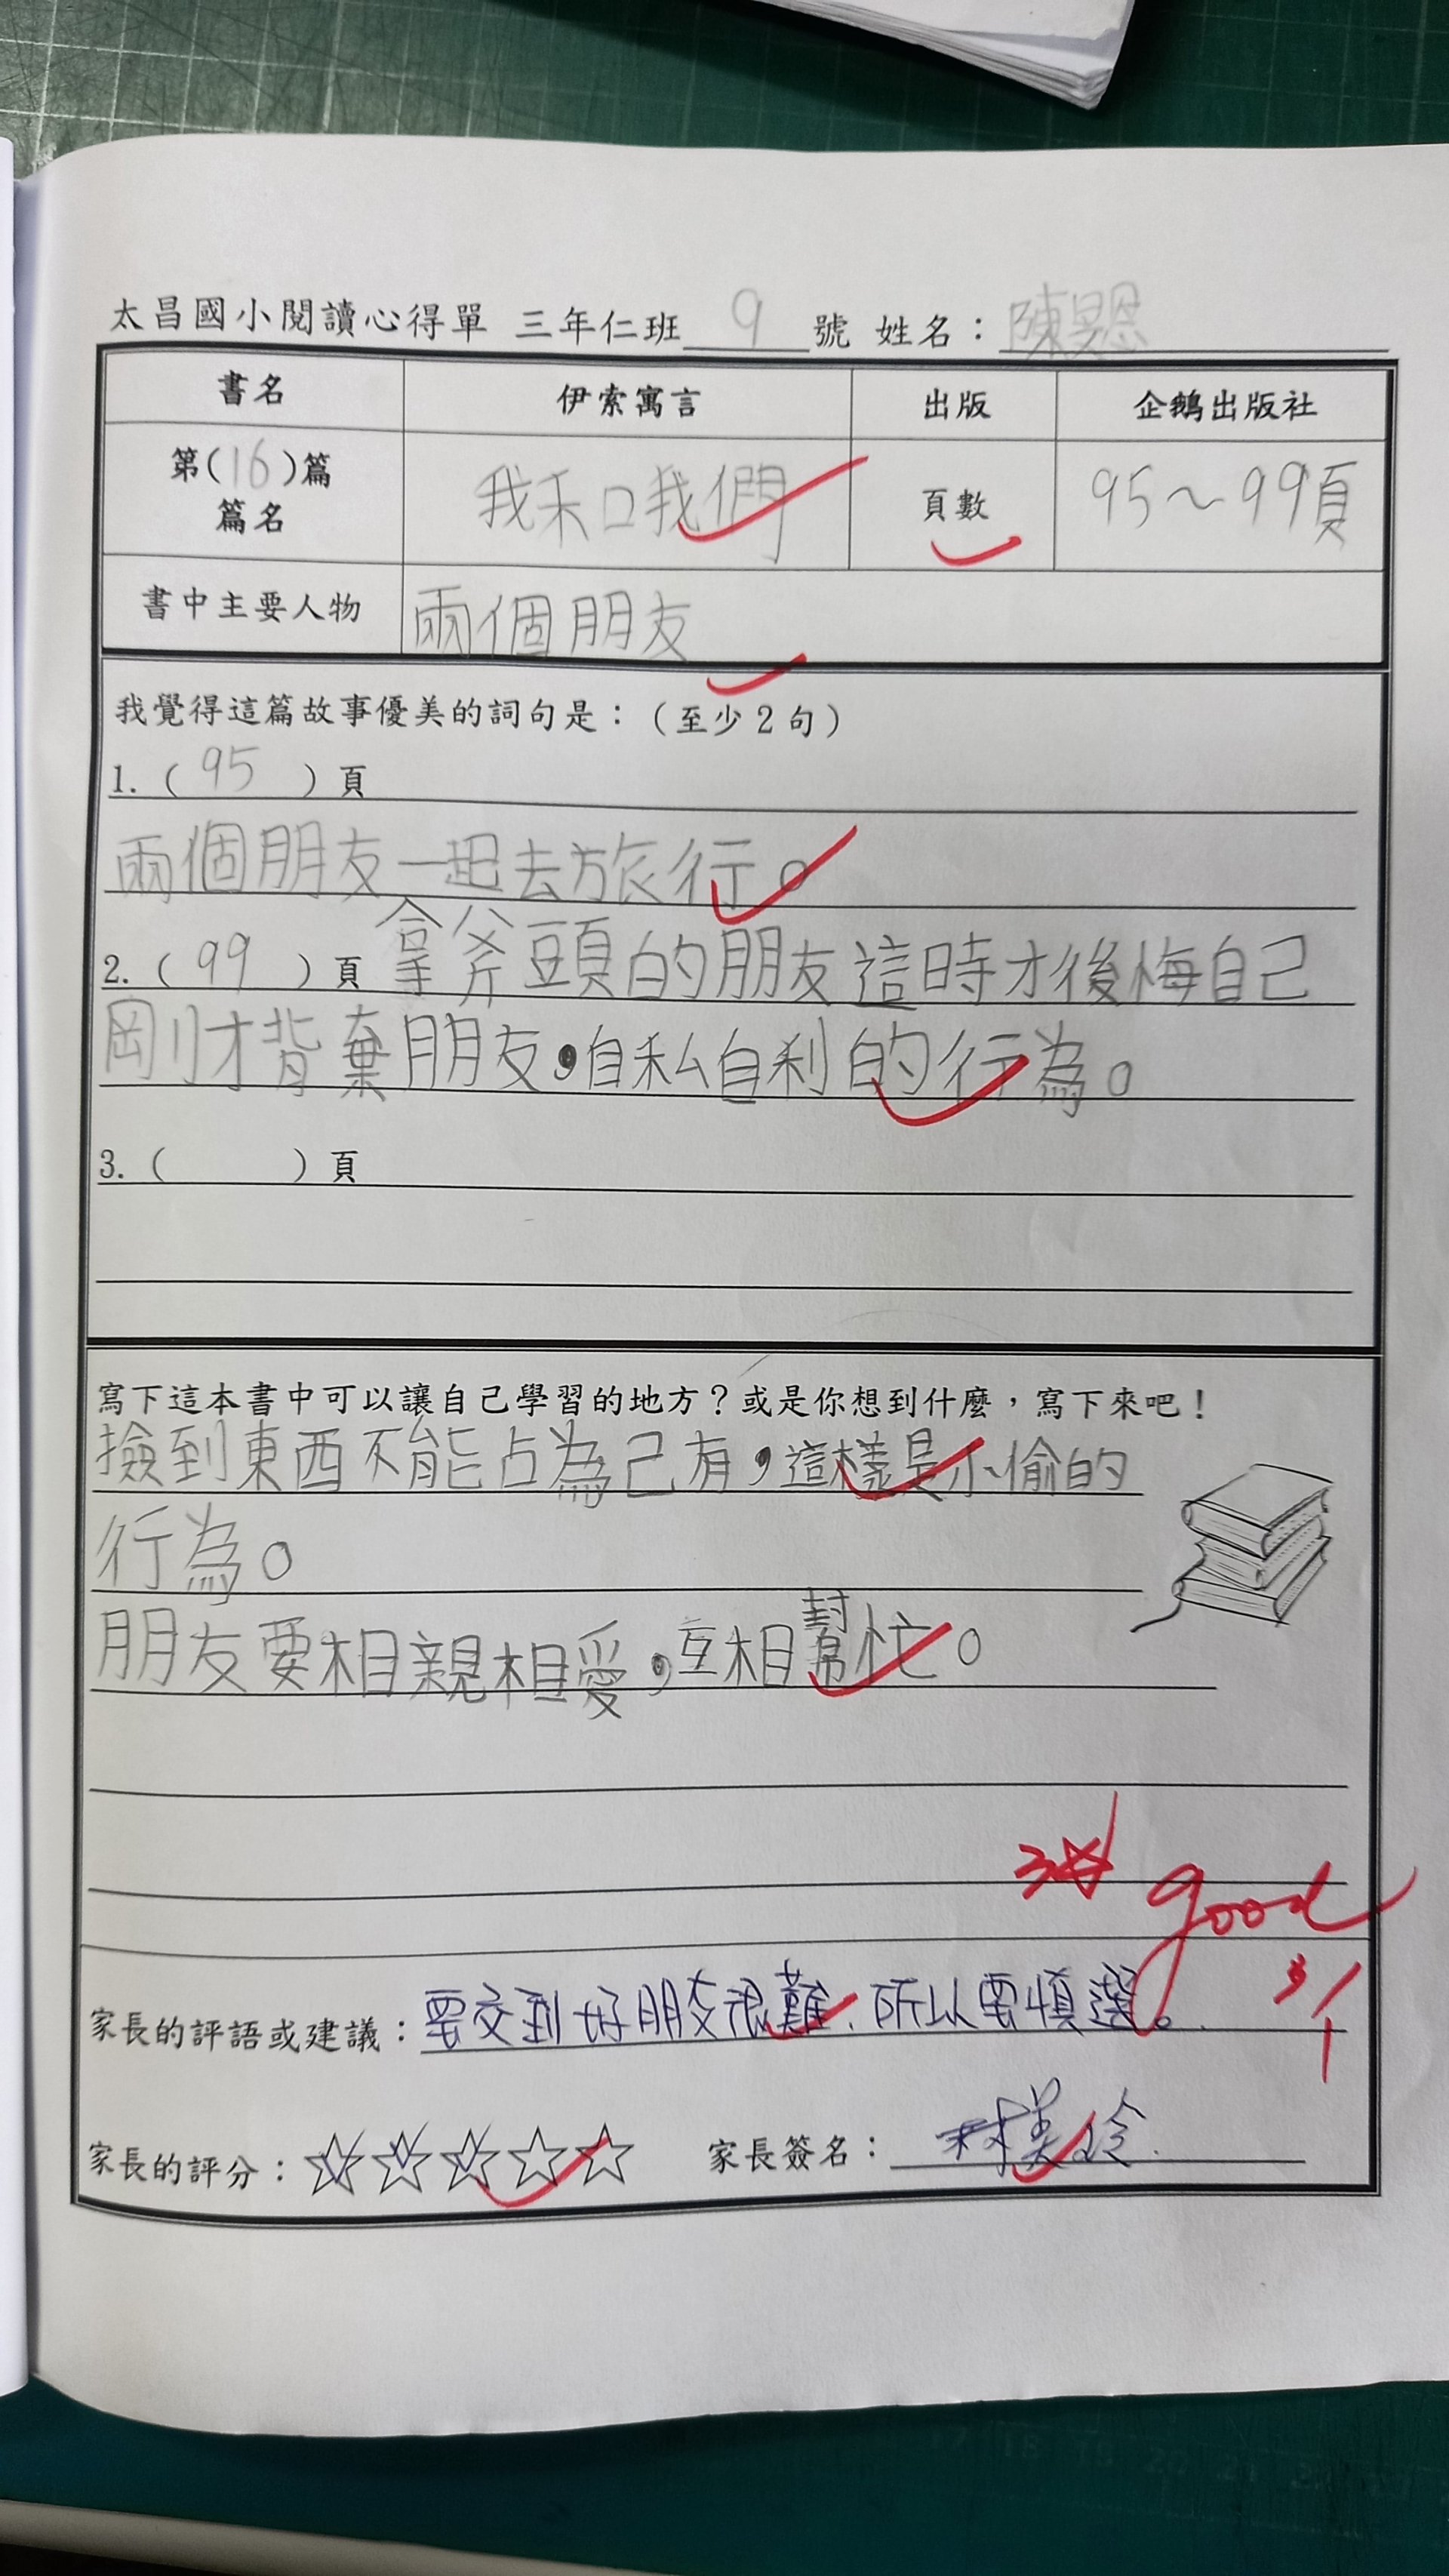 太昌國小閱讀心得單 三年仁班 9 號 姓名：陳昱恩
書名 伊索寓言 出版 企鵝出版社
第(16)篇 篇名 我和我們 頁數 95～99頁
書中主要人物 兩個朋友
我覺得這篇故事優美的詞句是：(至少2句)
1.( 95 )頁
兩個朋友一起去旅行。
2.( 99 )頁 拿斧頭的朋友這時才後悔自己
剛才背棄朋友，自私自利的行為。
3.( )頁
寫下這本書中可以讓自己學習的地方？或是你想到什麼，寫下來吧！
撿到東西不能占為己有，這樣是小偷的
行為。
朋友要相親相愛，互相幫忙。
3☆ good
3/1
家長的評語或建議：要交到好朋友很難，所以要慎選。
家長的評分：☆☆☆☆☆ 家長簽名：林美玲